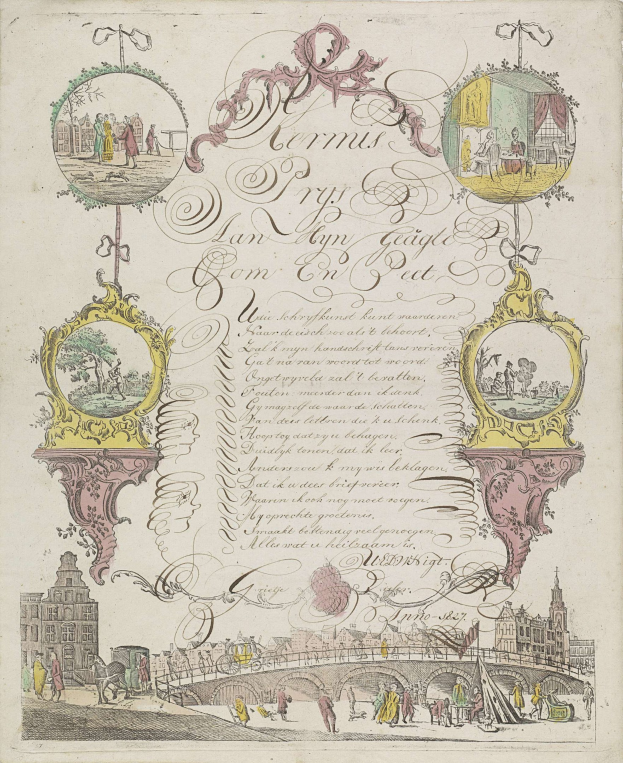 Kermis
Prys
Aan Myn Geägte
Oom En Peet
U die schryfkunst kunt waarderen
Naar de eisch zoo als 't behoort,
Zal 'k myn handschrift tans vereren
Ga 't na van woord tot woord:
Ongetwyveld zal 't bevatten,
Fouten meerder dan ik denk
Gy moogt zelf de waarde schatten
Van des lettren die k u schenk
Hoop tog dat zy u behagen
Duidlyk tonen dat ik leer
Anders zou k my wis beklagen
Dat ik u dees brief vereer
Waar en ik ook nog moet voegen
Myn oprechte groetenis
Smaakt bestendig veel genoegen
Alles wat u heilzaam is
UEDW Nigt
Grietje
Anno 1827